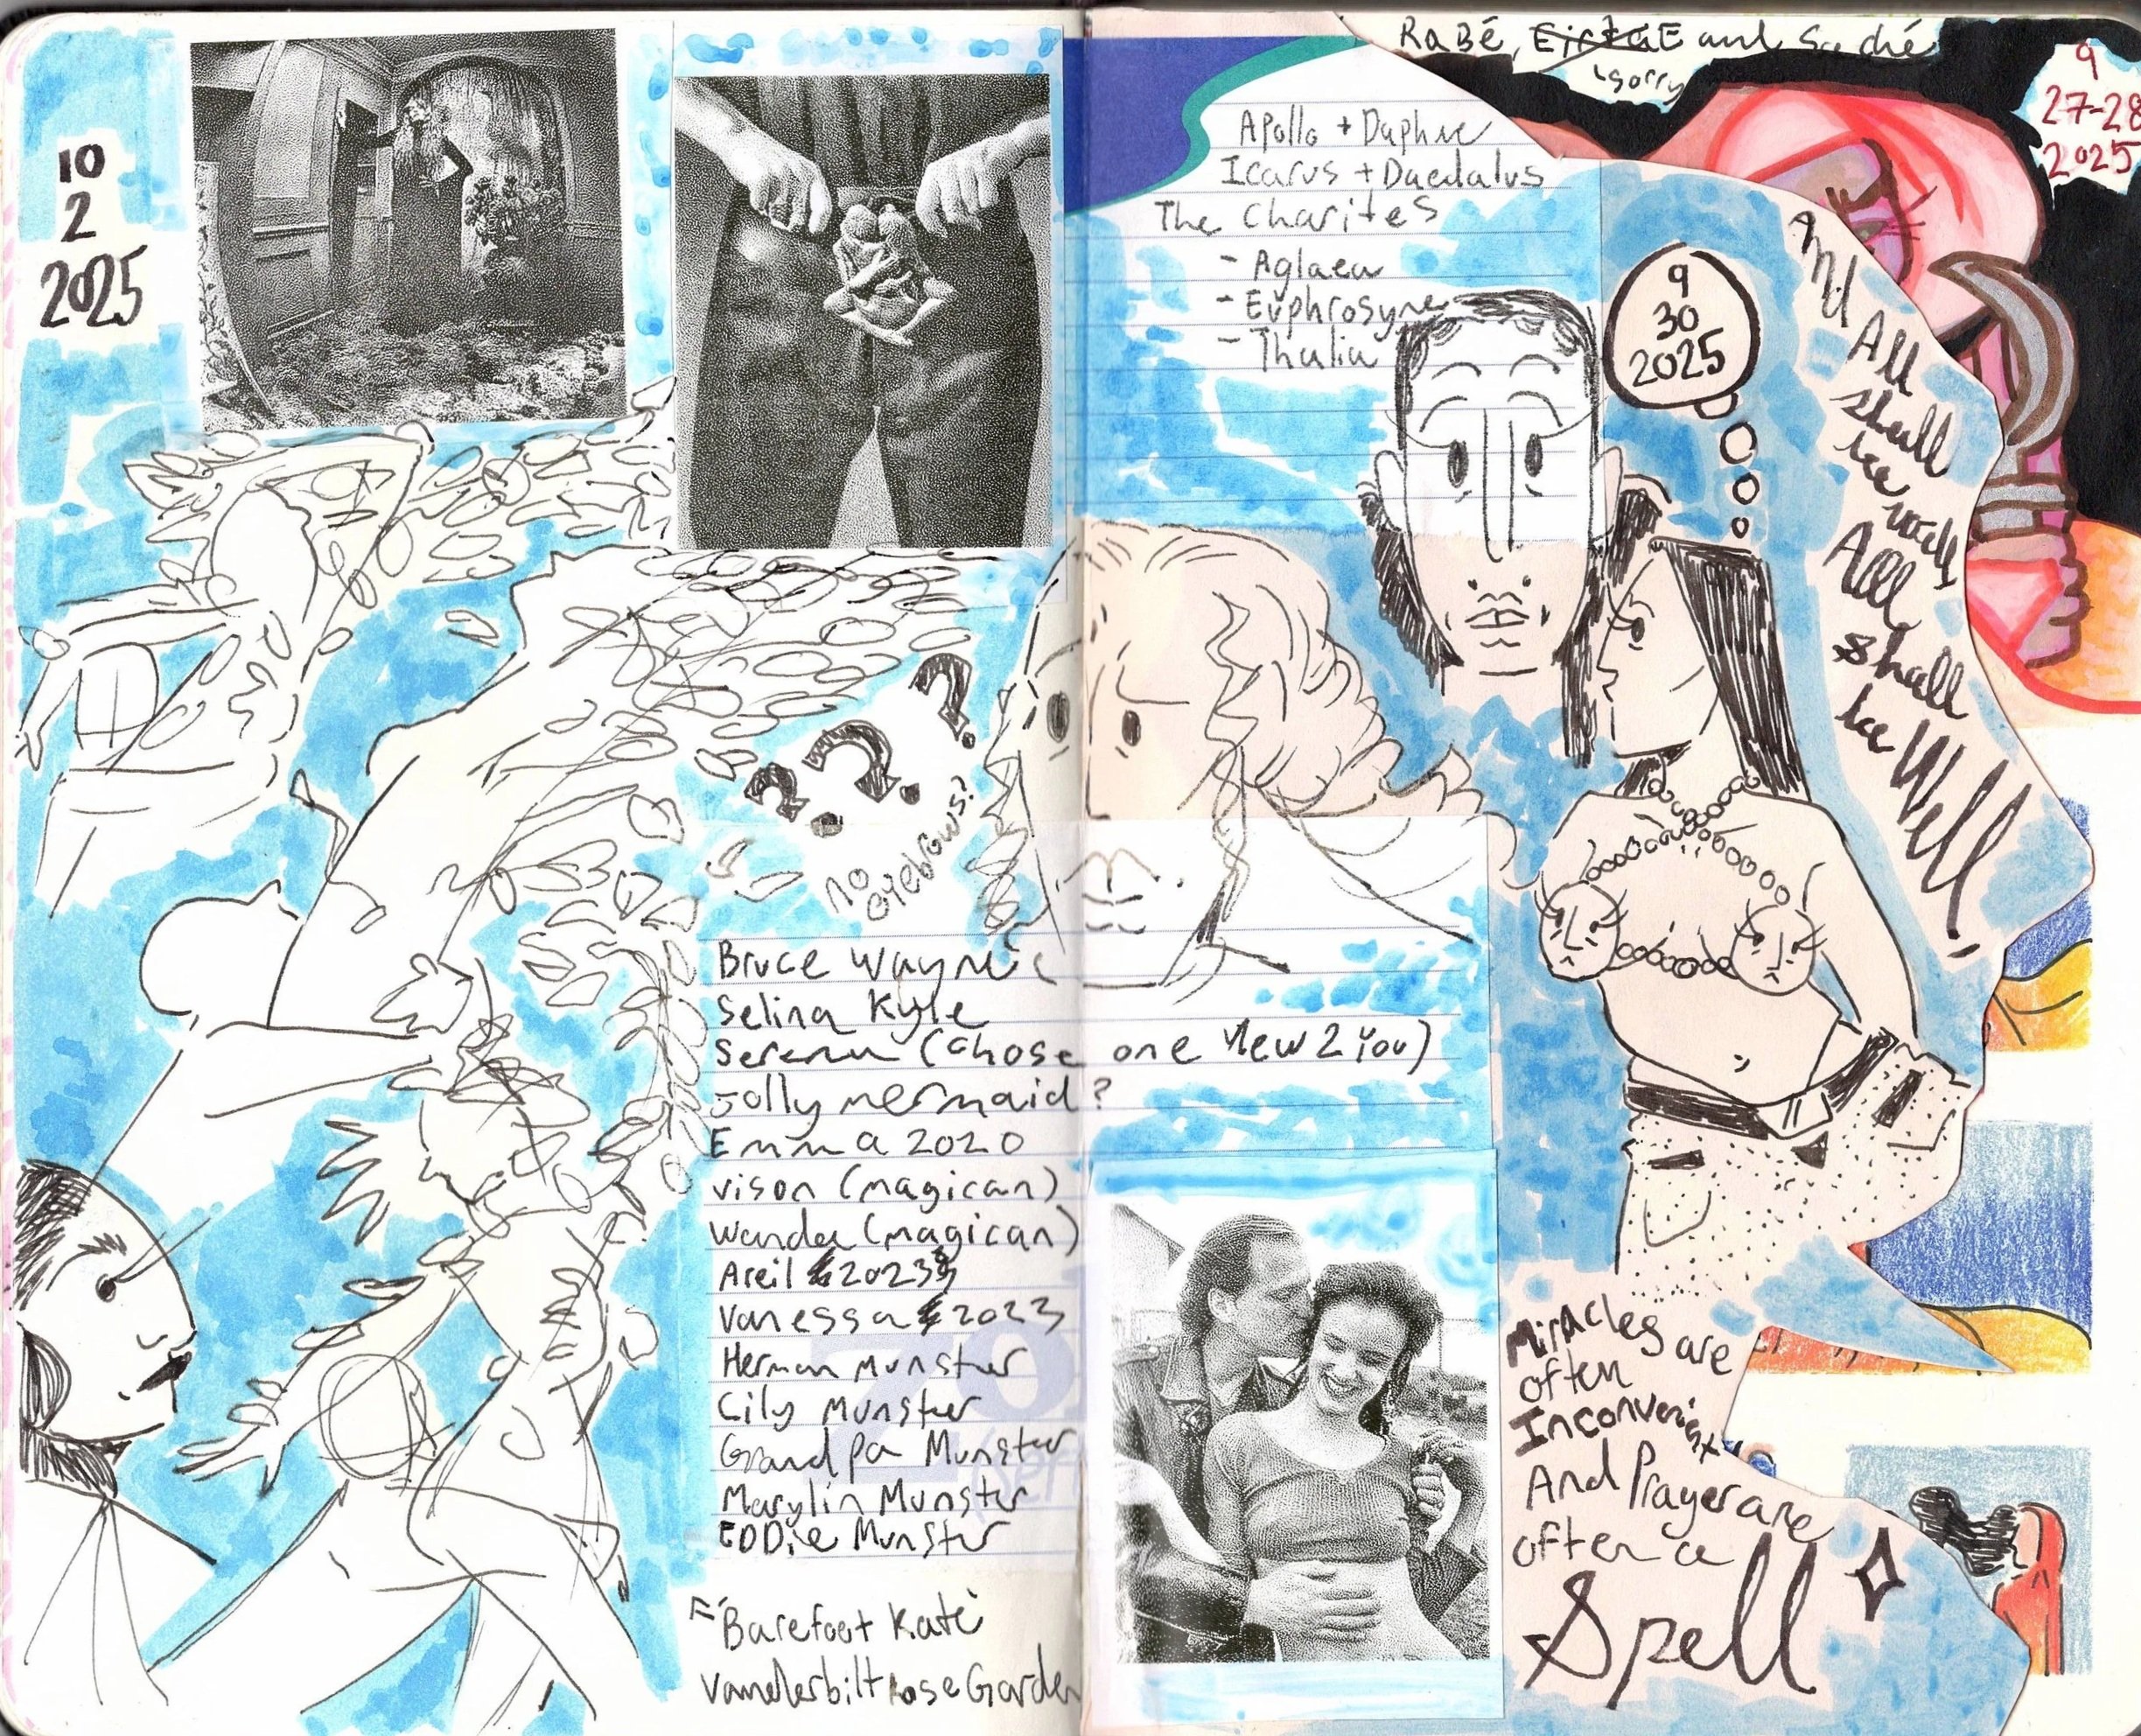 10
2
2025
???
no
eyebrows?
Bruce Wayne
Selina Kyle
Serena (chose one New 2 You)
Jolly mermaid?
Emma 2020
vison (magican)
Wanda (magican)
Areil 2023
Vanessa 2023
Herman Munster
Lily Munster
Grandpa Munster
Marylin Munster
EDDie Munster
Barefoot Kate
Vanderbilt Rose Garden
RaBé, and Saché
sorry
9
27-28
2025
Apollo + Daphne
Icarus + Daedalus
The Charites
- Aglaea
- Euphrosyne
- Thalia
9
30
2025
And
All
shall
be well
All
shall
be Well
Miracles are
often
Inconvenient
And Prayer are
often a
Spell